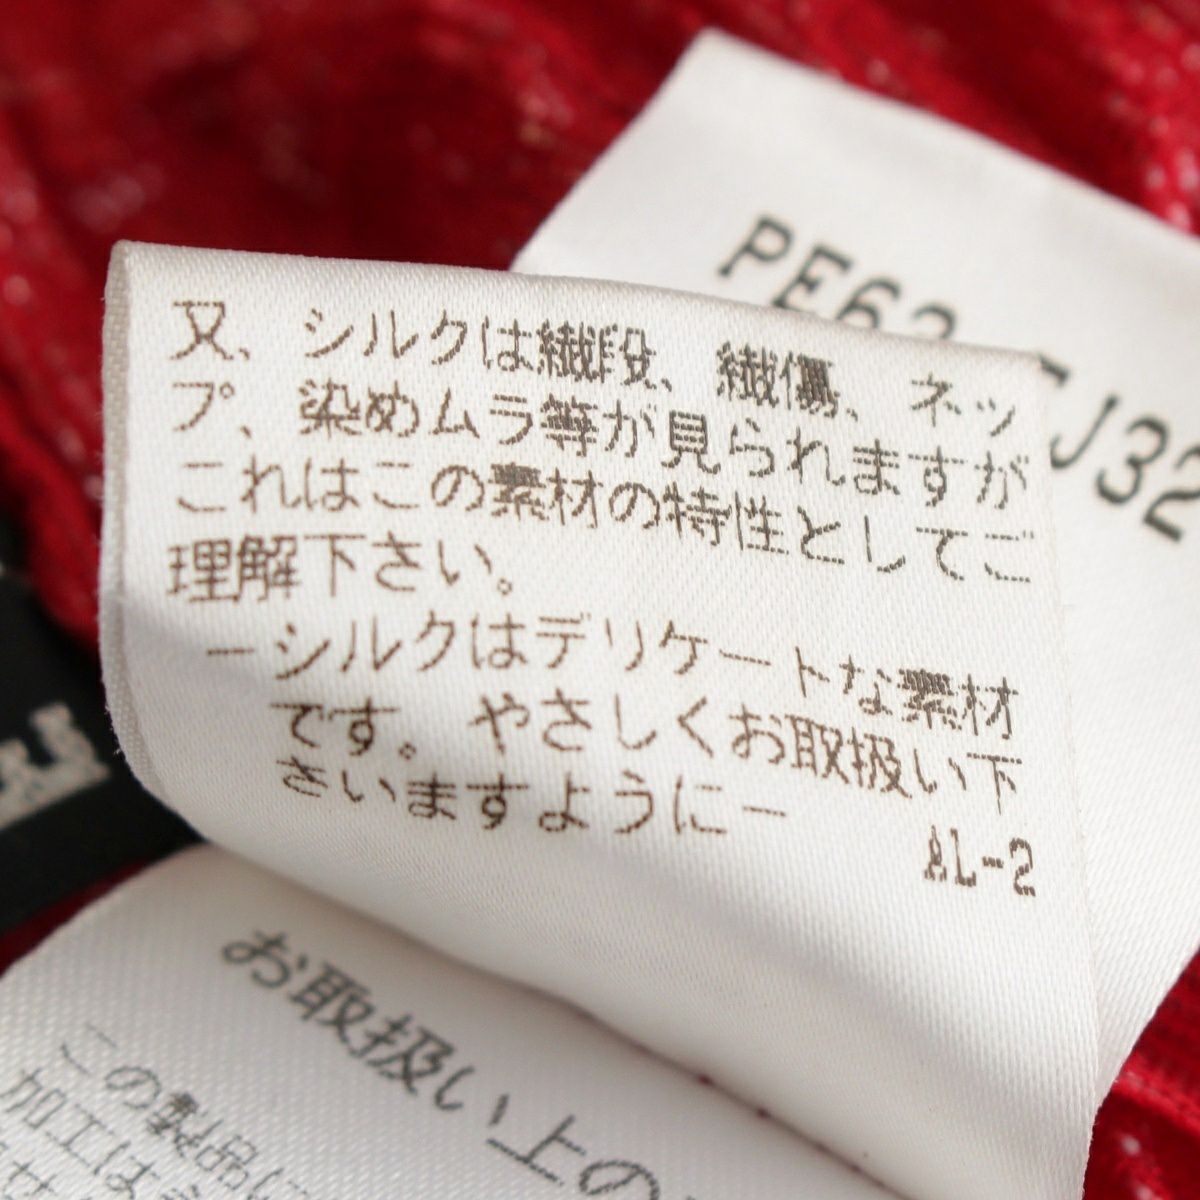 PE62-FJ32
又、シルクは繊段、繊傷、ネッ
プ、染めムラ等が見られますが
これはこの素材の特性としてご
理解下さい。
－シルクはデリケートな素材
です。やさしくお取扱い下
さいますように－
AL-2
お取扱い上の
この製品に
加工はよ